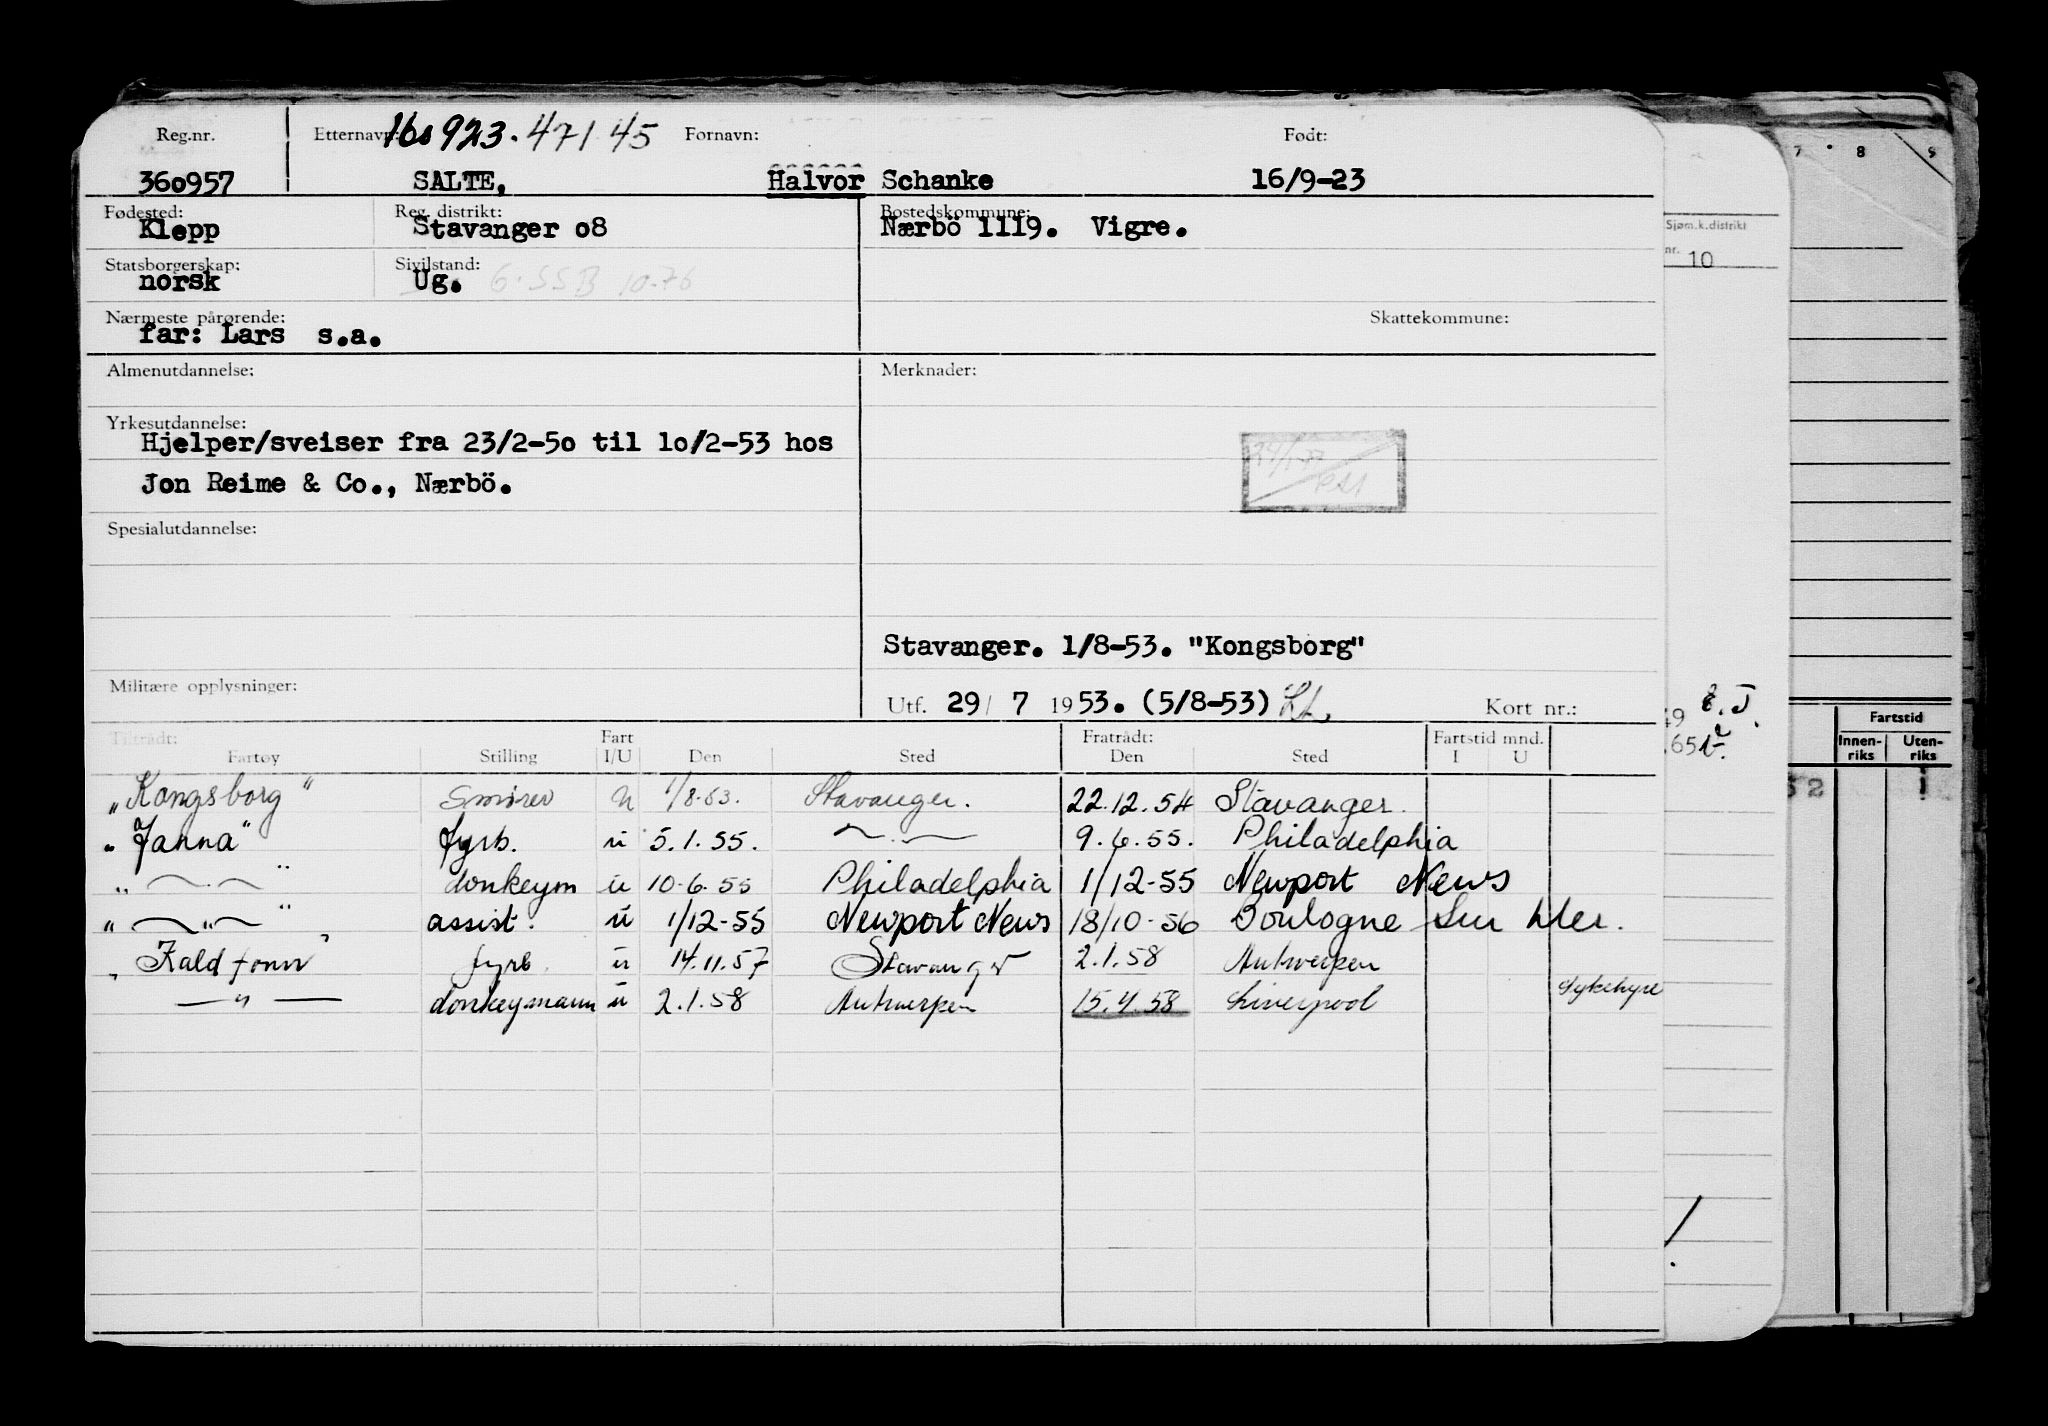 Reg.nr. Etternavn: 160923.47145 Fornavn: Født:
360957 SALTE, Halvor Schanke 16/9-23
Fødested: Reg. distrikt: Bostedskommune:
Klepp Stavanger 08 Nærbö 1119. Vigre.
Statsborgerskap: Sivilstand:
norsk Ug. 6.SSB 10-76
Nærmeste pårørende: Skattekommune:
far: Lars s.a.
Almenutdannelse: Merknader:
Yrkesutdannelse:
Hjelper/sveiser fra 23/2-50 til 10/2-53 hos
Jon Reime & Co., Nærbö.
Spesialutdannelse:
Stavanger. 1/8-53. "Kongsborg"
Militære opplysninger:
Utf. 29/ 7 1953. (5/8-53) Kort nr.:
Tiltrådt: Fart Fratrådt: Fartstid mnd.
Fartøy Stilling I/U Den Sted Den Sted I U
"Kongsborg" Smører u 1/8.53. Stavanger. 22.12.54 Stavanger.
"Janna" fyrb. u 5.1.55. —.— 9.6.55. Philadelphia
" —.— " donkeym u 10-6.55 Philadelphia 1/12-55 Newport News
" —"— " assist. u 1/12-55 Newport News 18/10-56 Boulogne Sur Mer.
"Kaldfonn" fyrb. u 14.11.57 Stavanger 2.1.58 Antwerpen
—"— donkeymann u 2.1.58 Antwerpen 15.4.58 Liverpool Sykehyre
Sjøm.k.distrikt
nr. 10
7 8 9
Fartstid
Innen-riks Uten-riks